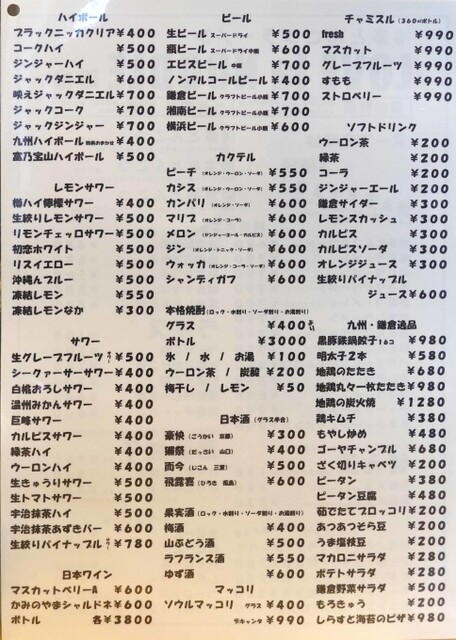 ハイボール
ブラックニッカクリア ¥400
コークハイ ¥500
ジンジャーハイ ¥500
ジャックダニエル ¥600
映えジャックダニエル ¥700
ジャックコーク ¥700
ジャックジンジャー ¥700
九州ハイボール ¥400
富乃宝山ハイボール ¥500
レモンサワー
樽ハイ檸檬サワー ¥400
生絞りレモンサワー ¥500
リモンチェッロサワー ¥500
初恋ホワイト ¥500
リスイエロー ¥500
沖縄んブルー ¥500
凍結レモン ¥550
凍結レモンなか ¥300
サワー
生グレープフルーツ ¥500
シークァーサーサワー ¥400
白桃おろしサワー ¥400
温州みかんサワー ¥400
巨峰サワー ¥400
カルピスサワー ¥400
緑茶ハイ ¥400
ウーロンハイ ¥400
生きゅうりサワー ¥500
生トマトサワー ¥500
宇治抹茶ハイ ¥500
宇治抹茶あずきバー ¥600
生絞りパイナップル ¥780
日本ワイン
マスカットベリーA ¥600
かみのやまシャルドネ ¥600
ボトル 各¥3800
ビール
生ビール スーパードライ ¥500
瓶ビール スーパードライ中瓶 ¥600
エビスビール 中瓶 ¥700
ノンアルコールビール ¥400
鎌倉ビール クラフトビール小瓶 ¥700
湘南ビール クラフトビール小瓶 ¥700
横浜ビール クラフトビール小瓶 ¥600
カクテル
ピーチ (オレンジ・ウーロン・ソーダ) ¥550
カシス (オレンジ・ウーロン・ソーダ) ¥550
カンパリ (オレンジ・ソーダ) ¥600
マリブ (オレンジ・コーラ) ¥600
メロン (ジンジャーエール・カルピス) ¥600
ジン (オレンジ・トニック・ソーダ) ¥600
ウォッカ (オレンジ・コーラ・ソーダ) ¥600
シャンディガフ ¥600
本格焼酎 (ロック・水割り・ソーダ割り・お湯割り)
グラス ¥400
ボトル ¥3000
氷 / 水 / お湯 ¥100
ウーロン茶 / 炭酸 ¥200
梅干し / レモン ¥50
日本酒 (グラス半合)
豪快 (ごうかい 京都) ¥300
獺祭 (だっさい 山口) ¥400
而今 (じこん 三重) ¥500
飛露喜 (ひろき 福島) ¥600
果実酒 (ロック・水割り・ソーダ割り・お湯割り)
梅酒 ¥400
山ぶどう酒 ¥500
ラフランス酒 ¥550
ゆず酒 ¥600
マッコリ
ソウルマッコリ グラス ¥400
デキャンタ ¥990
チャミスル (360mlボトル)
fresh ¥990
マスカット ¥990
グレープフルーツ ¥990
すもも ¥990
ストロベリー ¥990
ソフトドリンク
ウーロン茶 ¥200
緑茶 ¥200
コーラ ¥200
ジンジャーエール ¥200
鎌倉サイダー ¥300
レモンスカッシュ ¥300
カルピス ¥300
カルピスソーダ ¥300
オレンジジュース ¥300
生絞りパイナップル
ジュース ¥600
九州・鎌倉逸品
黒豚鉄鍋餃子 16コ ¥980
明太子2本 ¥580
地鶏のたたき ¥680
地鶏丸々一枚たたき ¥980
地鶏の炭火焼 ¥1280
鶏キムチ ¥380
もやし炒め ¥480
ゴーヤチャンプル ¥680
ざく切りキャベツ ¥200
ピータン ¥380
ピータン豆腐 ¥480
茹でたてブロッコリ ¥200
あつあつそら豆 ¥200
うま塩枝豆 ¥200
マカロニサラダ ¥280
ポテトサラダ ¥280
鎌倉野菜サラダ ¥500
もろきゅう ¥200
しらすと海苔のピザ ¥980